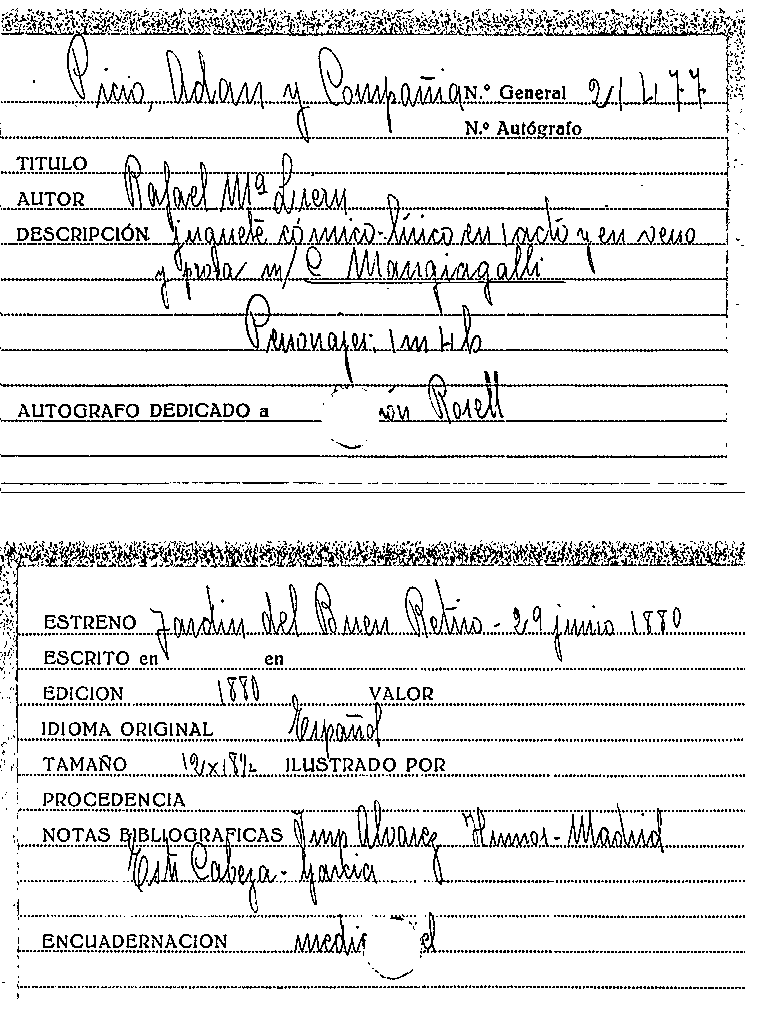 Picio, Adan y Compañia N.º General 21477
N.º Autógrafo
TITULO
AUTOR Rafael Mª Liern
DESCRIPCIÓN juguete cómico-lírico en 1 acto y en verso
y prosa m/ C. Mangiagalli
Personajes: 1m 4h
AUTOGRAFO DEDICADO a Rosell
ESTRENO Jardin del Buen Retiro - 29 junio 1880
ESCRITO en en
EDICION 1880 VALOR
IDIOMA ORIGINAL Español
TAMAÑO 12x18½ ILUSTRADO POR
PROCEDENCIA
NOTAS BIBLOGRAFICAS Imp Alvarez Hnnos - Madrid
Cabeza -
ENCUADERNACION